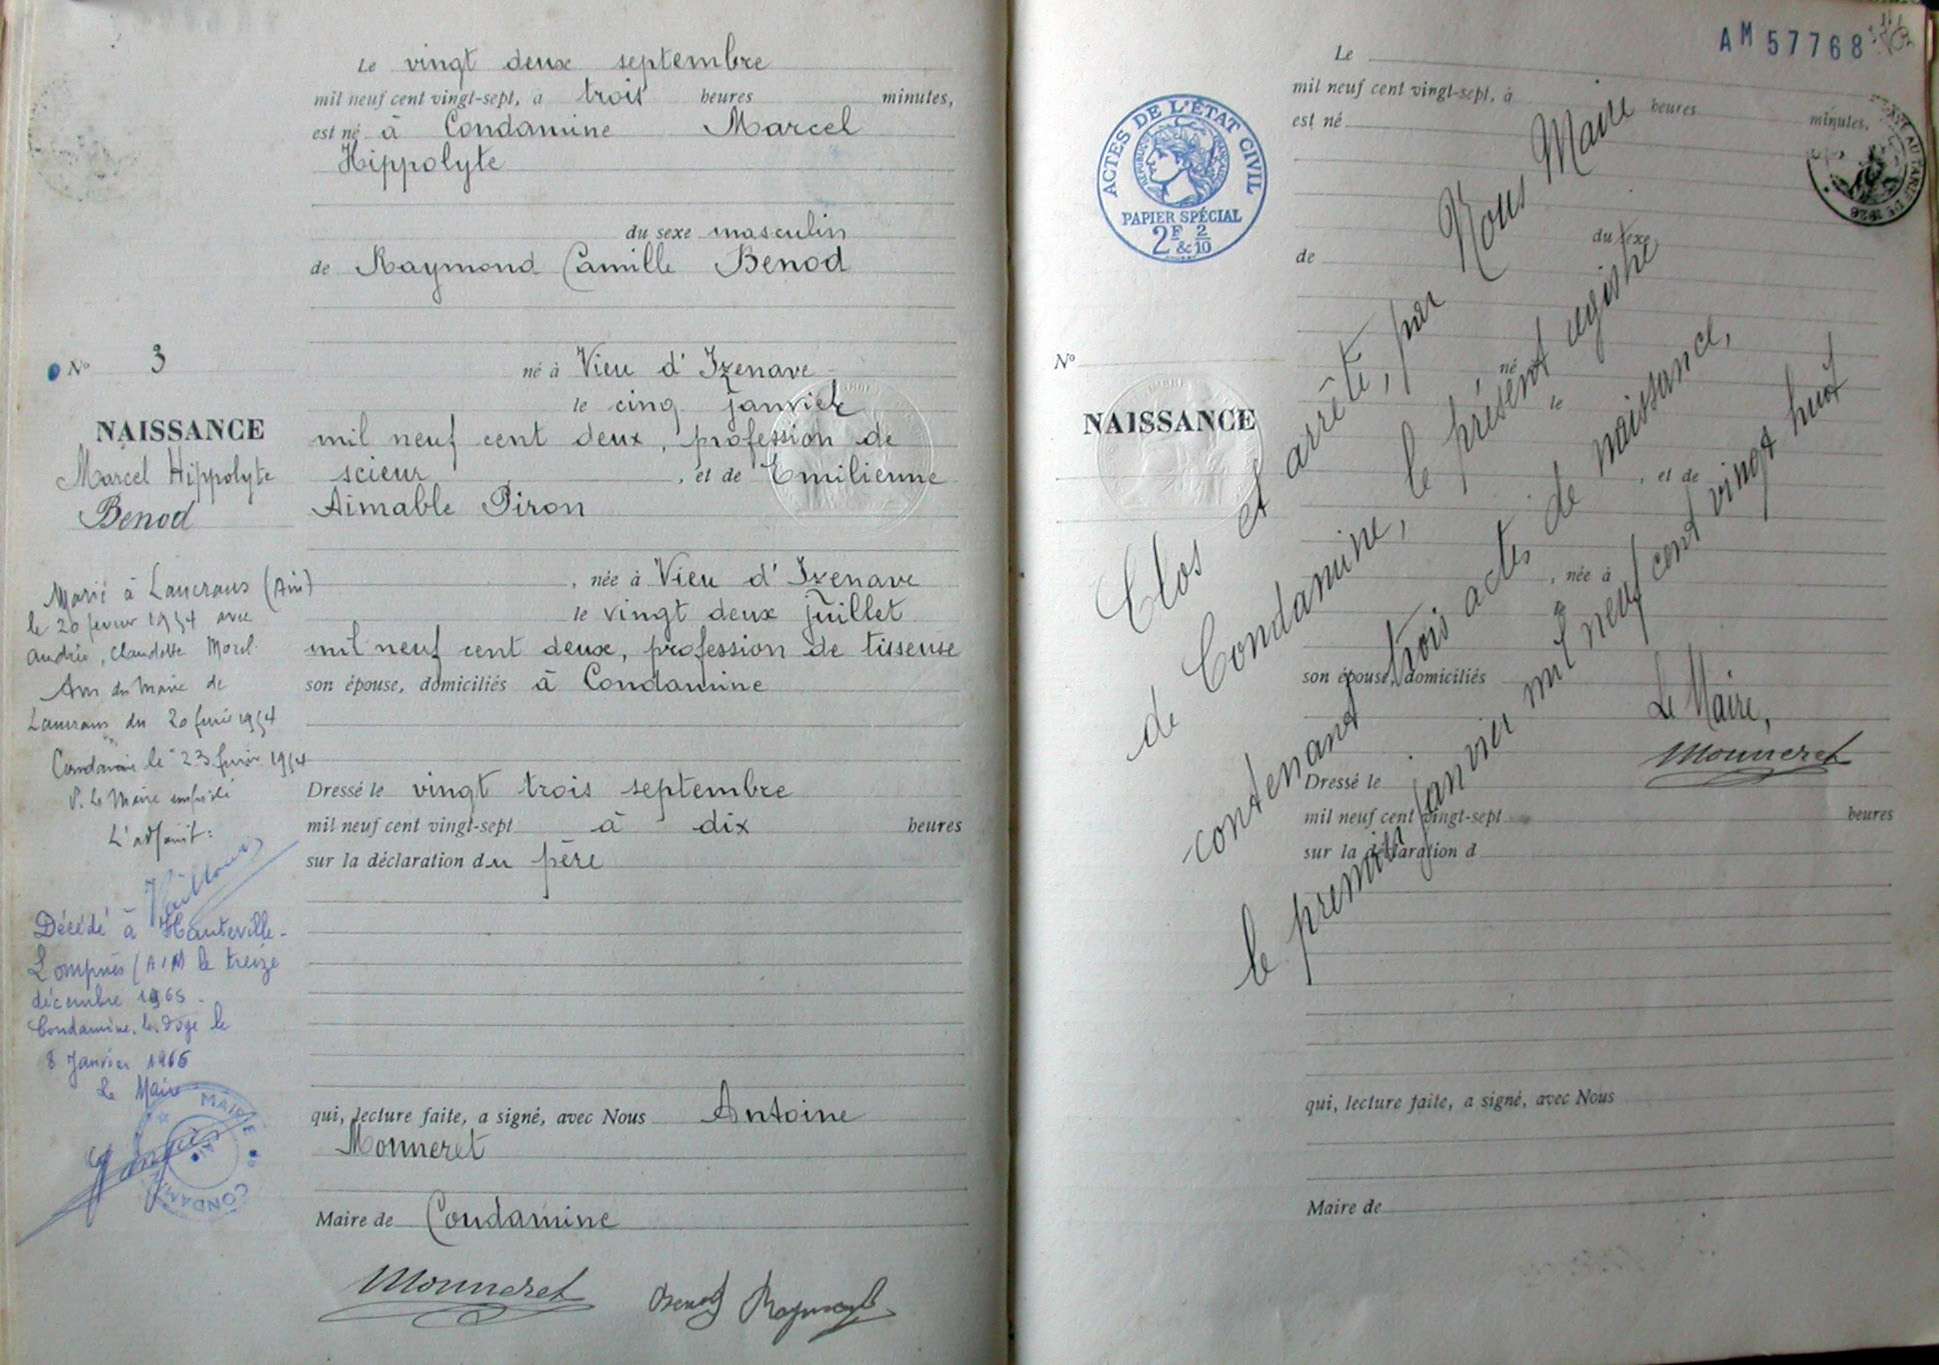 Le vingt deux septembre
mil neuf cent vingt-sept, à trois heures minutes,
est né à Condamine Marcel
Hippolyte
du sexe masculin
de Raymond Camille Benod
né à Vieu d'Izenave
le cinq janvier
mil neuf cent deux, profession de
scieur, et de Emilienne
Aimable Piron
, née à Vieu d'Izenave
le vingt deux juillet
mil neuf cent deux, profession de tisseuse
son épouse, domiciliés à Condamine
Dressé le vingt trois septembre
mil neuf cent vingt-sept à dix heures
sur la déclaration du père
qui, lecture faite, a signé, avec Nous Antoine
Monneret
Maire de Condamine
Monneret Benod Raymond
No 3
NAISSANCE
Marcel Hippolyte
Benod
Marié à Lancrans (Ain)
le 20 fevrier 1954 avec
Andrée, Claudette Morel
Avis du Maire de
Lancrans du 20 février 1954
Condamine le 23 février 1954
P. le Maire
L'adjoint:
Décédé à Hauteville-
Lompnès (AIN) le treize
décembre 1965
Condamine, le
8 Janvier 1966
Le Maire
MAIRIE
CONDAMINE
AIN
AM 57768
Le
mil neuf cent vingt-sept, à heures minutes,
est né
du sexe
de
ACTES DE L'ÉTAT CIVIL
RÉPUBLIQUE FRANÇAISE
PAPIER SPÉCIAL
2F & 2/10
No
NAISSANCE
né
le
, et de
, née à
son épouse, domiciliés
Dressé le
mil neuf cent vingt-sept heures
sur la déclaration d
qui, lecture faite, a signé, avec Nous
Maire de
Clos et arrêté, par Nous Maire
de Condamine, le présent registre
contenant trois actes de naissance,
le premier janvier mil neuf cent vingt huit
Le Maire,
Monneret